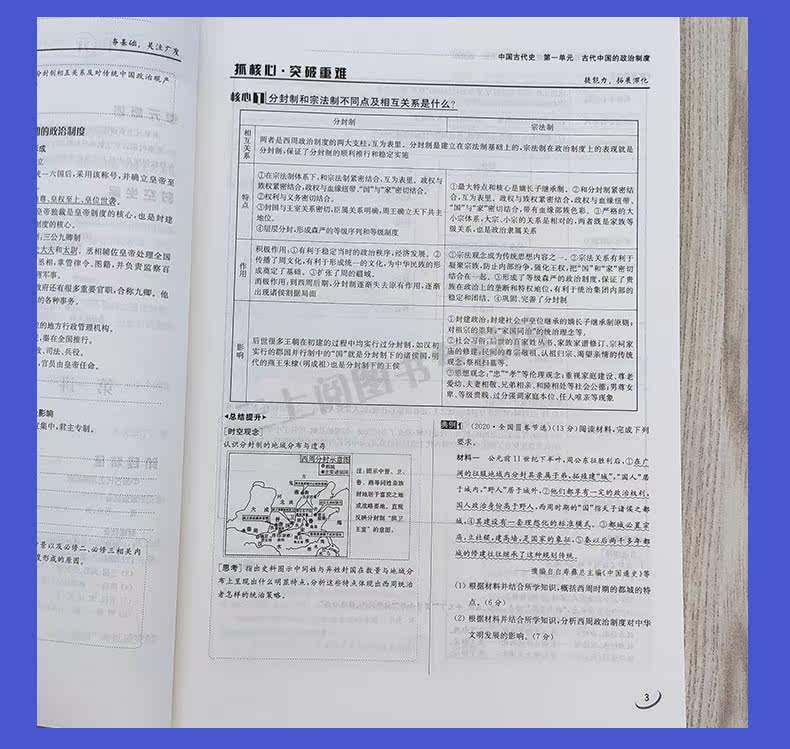 夯基础，关注广度
分封制相互关系及对传统中国政治观产
的政治制度
成
立
统一六国后，采用该称号，并确立皇帝至
尊、皇权至上、皇位世袭。
帝独裁是皇帝制度的核心，也是封建
制度的核心。
，三公九卿制
大夫和太尉。丞相辅佐皇帝处理全国
丞相，掌管律令、图籍，并负责监察百
理军事。
政府还有很多重要官职，合称九卿，他
的各种事务。
的地方行政管理机构。
，秦在全国推行。
政、司法、兵役。
，官员由皇帝任命。
影响
集中，君主专制。
景以及必修二、必修三相关内
度形成的原因。
中国古代史 第一单元 古代中国的政治制度
抓核心·突破重难
提能力，拓展深化
核心1 分封制和宗法制不同点及相互关系是什么？
分封制 宗法制
相互关系
两者是西周政治制度的两大支柱，互为表里。分封制是建立在宗法制基础上的，宗法制在政治制度上的表现就是
分封制，保证了分封制的顺利推行和稳定实施
特点
①在宗法制体系下，和宗法制紧密结合，互为表里。政权与
族权紧密结合，政权与血缘纽带、“国”与“家”密切结合。
②权利与义务密切结合。
③封国与王室关系密切，臣属关系明确，周王确立天下共主
地位。
④层层分封，形成森严的等级序列和等级制度
①最大特点和核心是嫡长子继承制。②和分封制紧密结
合，互为表里。政权与族权紧密结合，政权与血缘纽带、
“国”与“家”密切结合，带有血缘部族色彩。③严格的大
小宗体系，大宗、小宗的关系是相对的，两者既是家族等
级关系，也是政治隶属关系
作用
积极作用：①有利于稳定当时的政治秩序，经济发展。②
传播了周文化，有利于形成统一的文化，为中华民族的形
成奠定了基础。③扩张了周的疆域。
消极作用：到西周后期，分封制逐渐失去原有作用，逐渐
出现诸侯割据局面
①宗法观念成为传统思想内容之一。②宗法关系有利于
凝聚宗族，防止内部纷争，强化王权，把“国”和“家”密切
结合在一起。③形成了等级森严的政治制度，保证了贵
族在政治上的垄断和特权地位，有利于统治集团内部的
稳定和团结。④巩固、完善了分封制
影响
后世很多王朝在初建的过程中均实行过分封制，如汉初
实行的郡国并行制中的“国”就是分封制下的诸侯国，明
代的燕王朱棣（明成祖）也是分封制下的王侯
①封建政治：封建社会中皇位继承的嫡长子继承制原则；
对祖宗的崇拜；“家国同治”的统治理念等。
②社会习俗：后世的百家姓丛书、家族家谱修订、宗祠家
庙的修建；民间的尊宗敬祖、认祖归宗、渴望亲情的传统
观念，祭祖扫墓等。
③思想观念：“忠”“孝”等伦理观念；重视家庭建设、尊老
爱幼、夫妻相敬、兄弟相亲、和睦相处等社会公德；男尊女
卑、等级贵贱、过分强调家庭本位、任人唯亲等现象
上阅图书
总结提升
[时空观念]
认识分封制的地域分布与遗存
西周分封示意图
注：图示中晋、卫、
鲁、燕等同姓亲族
封地居于富庶之地
或战略要地，直观
反映分封制“拱卫
王室”的意图。
[思考] 指出史料图示中同姓与异姓封国在数量与地域分
布上呈现出什么明显特点，分析这些特点体现出西周统治
者怎样的统治策略。
典例1 (2020·全国Ⅲ卷节选)(13分)阅读材料，完成下列
要求。
材料一 公元前11世纪下半叶，周公东征胜利后，①在广
阔的征服地域内分封其亲属子弟，拓殖建“城”，“国人”居
于城内，“野人”居于城外，②他们都享有一定的政治权利，
国人政治身份高于野人，西周时期的“国”指天子诸侯之都
城，④其建设有一套理想化的标准模式，③都城必置宗
庙、立社稷、建高墙，是国家的象征，⑤参以后两千多年都
城的修建往往继承了这种规划传统。
——摘编自白寿彝总主编《中国通史》等
(1) 根据材料并结合所学知识，概括西周时期的都城的特
点。(6分)
(2) 根据材料并结合所学知识，分析西周政治制度对中华
文明发展的影响。(7分)
3